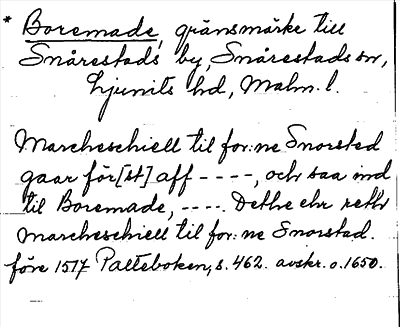 * Boremade, gränsmärke till
Snårestads by, Snårestads sn,
Ljunits hd, Malm. l.
Marcheschiell til for:ne Snorsted
gaar för[st] aff ----, och saa ind
til Boremade, ----. Dethe ehr rethr
Marcheschiell til for:ne Snorstad.
före 1517 Palteboken, s. 462. avskr. o. 1650.